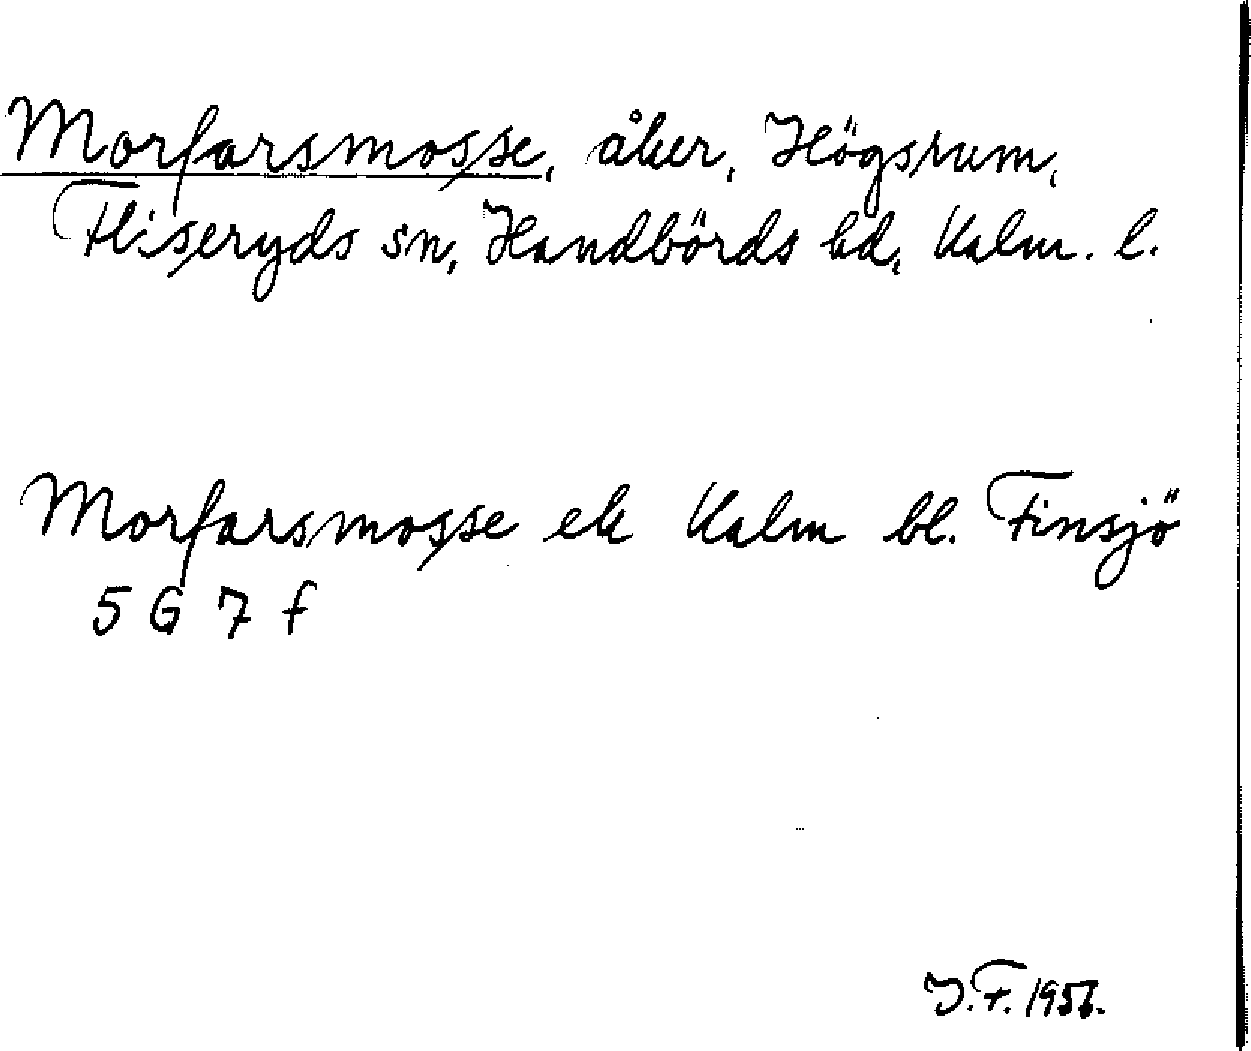 Morfarsmosse, åker, Högsrum,
Fliseryds sn, Handbörds hd, Kalm. l.
Morfarsmosse ek Kalm bl. Finsjö
5 G 7 f
J.F. 1956.